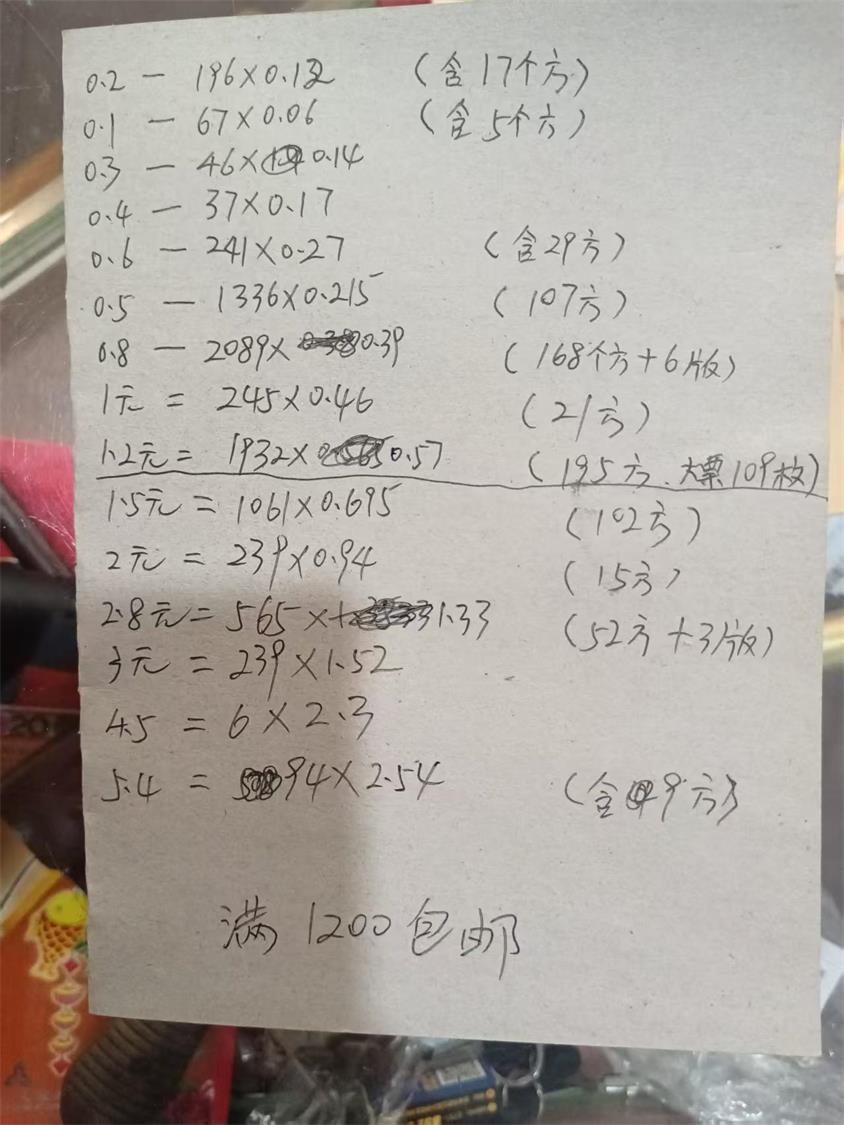 0.2 — 196×0.12 (含17个方)
0.1 — 67×0.06 (含5个方)
0.3 — 46×0.14
0.4 — 37×0.17
0.6 — 241×0.27 (含29方)
0.5 — 1336×0.215 (107方)
0.8 — 2089×0.39 (168个方+6版)
1元 = 245×0.46 (21方)
1.2元 = 1932×0.57 (195方、大票109枚)
1.5元 = 1061×0.695 (102方)
2元 = 239×0.94 (15方)
2.8元 = 565×1.33 (52方+3版)
3元 = 239×1.52
4.5 = 6×2.3
5.4 = 94×2.54 (含9方)
满1200包邮
20